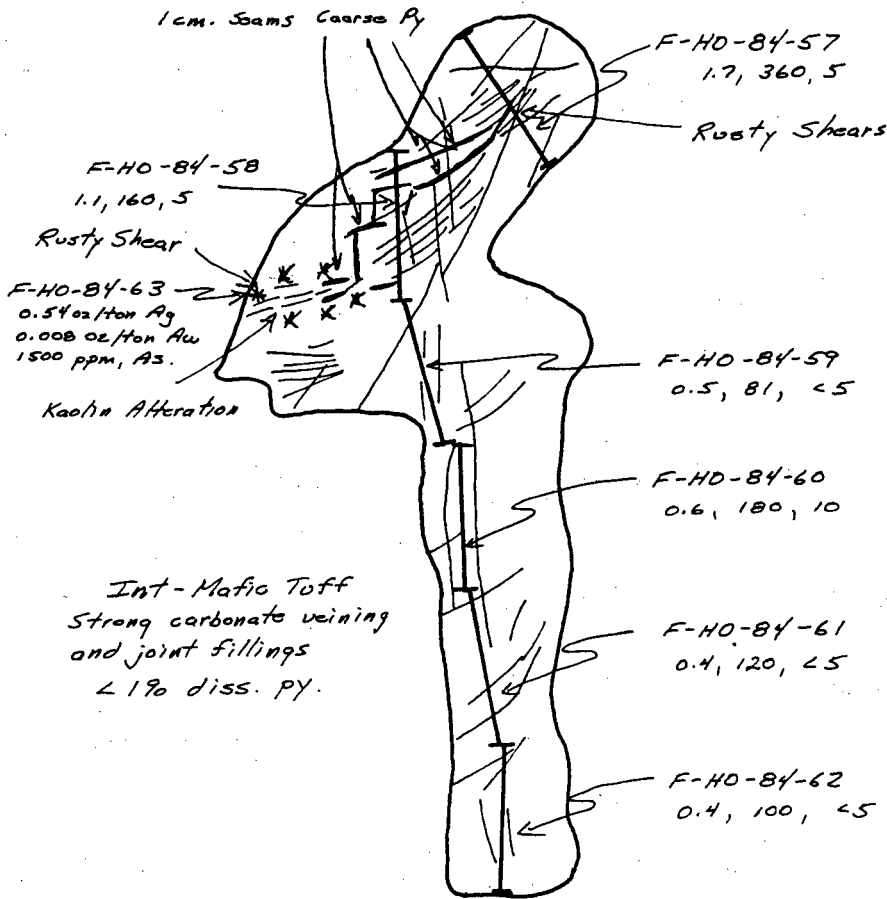 1 cm. Seams Coarse Py
F-HO-84-57
1.7, 360, 5
Rusty Shears
F-HO-84-58
1.1, 160, 5
Rusty Shear
F-HO-84-63
0.54 oz/ton Ag
0.008 oz/ton Au
1500 ppm, As.
Kaolin Alteration
F-HO-84-59
0.5, 81, <5
F-HO-84-60
0.6, 180, 10
Int-Mafic Tuff
Strong carbonate veining
and joint fillings
< 1% diss. py.
F-HO-84-61
0.4, 120, <5
F-HO-84-62
0.4, 100, <5